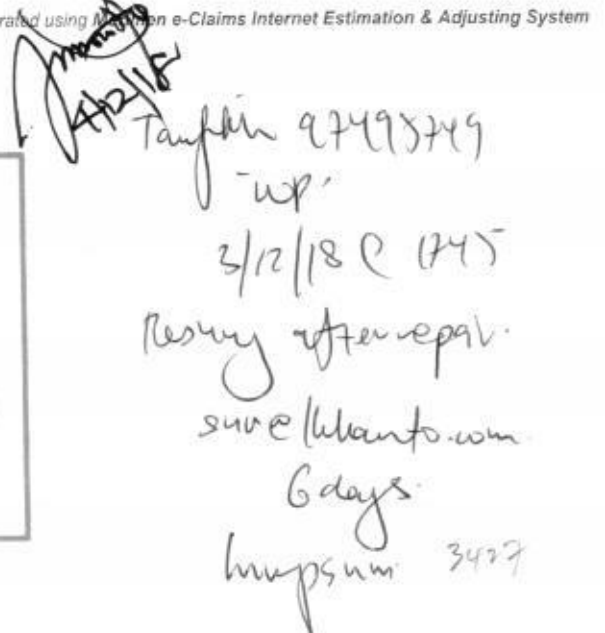 rated using Merimen e-Claims Internet Estimation & Adjusting System
4/12/18
Taufikh 97495749
"WP"
3/12/18 @ 1745
Resurvey after repair.
sur@lkkauto.com
6 days.
lumpsum 3427